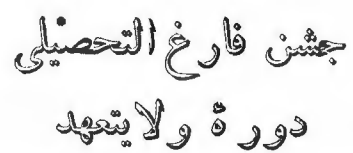 جشن فارغ التحصیلی
دورۀ ولایتعهد